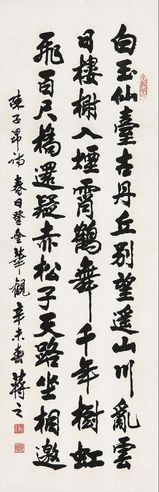 白玉仙臺古丹丘別望遙山川亂雲
日樓榭入煙霄鶴舞千年樹虹
飛百尺橋還疑赤松子天路坐相邀
陳子昂詩春日登金華觀辛未春蔣之